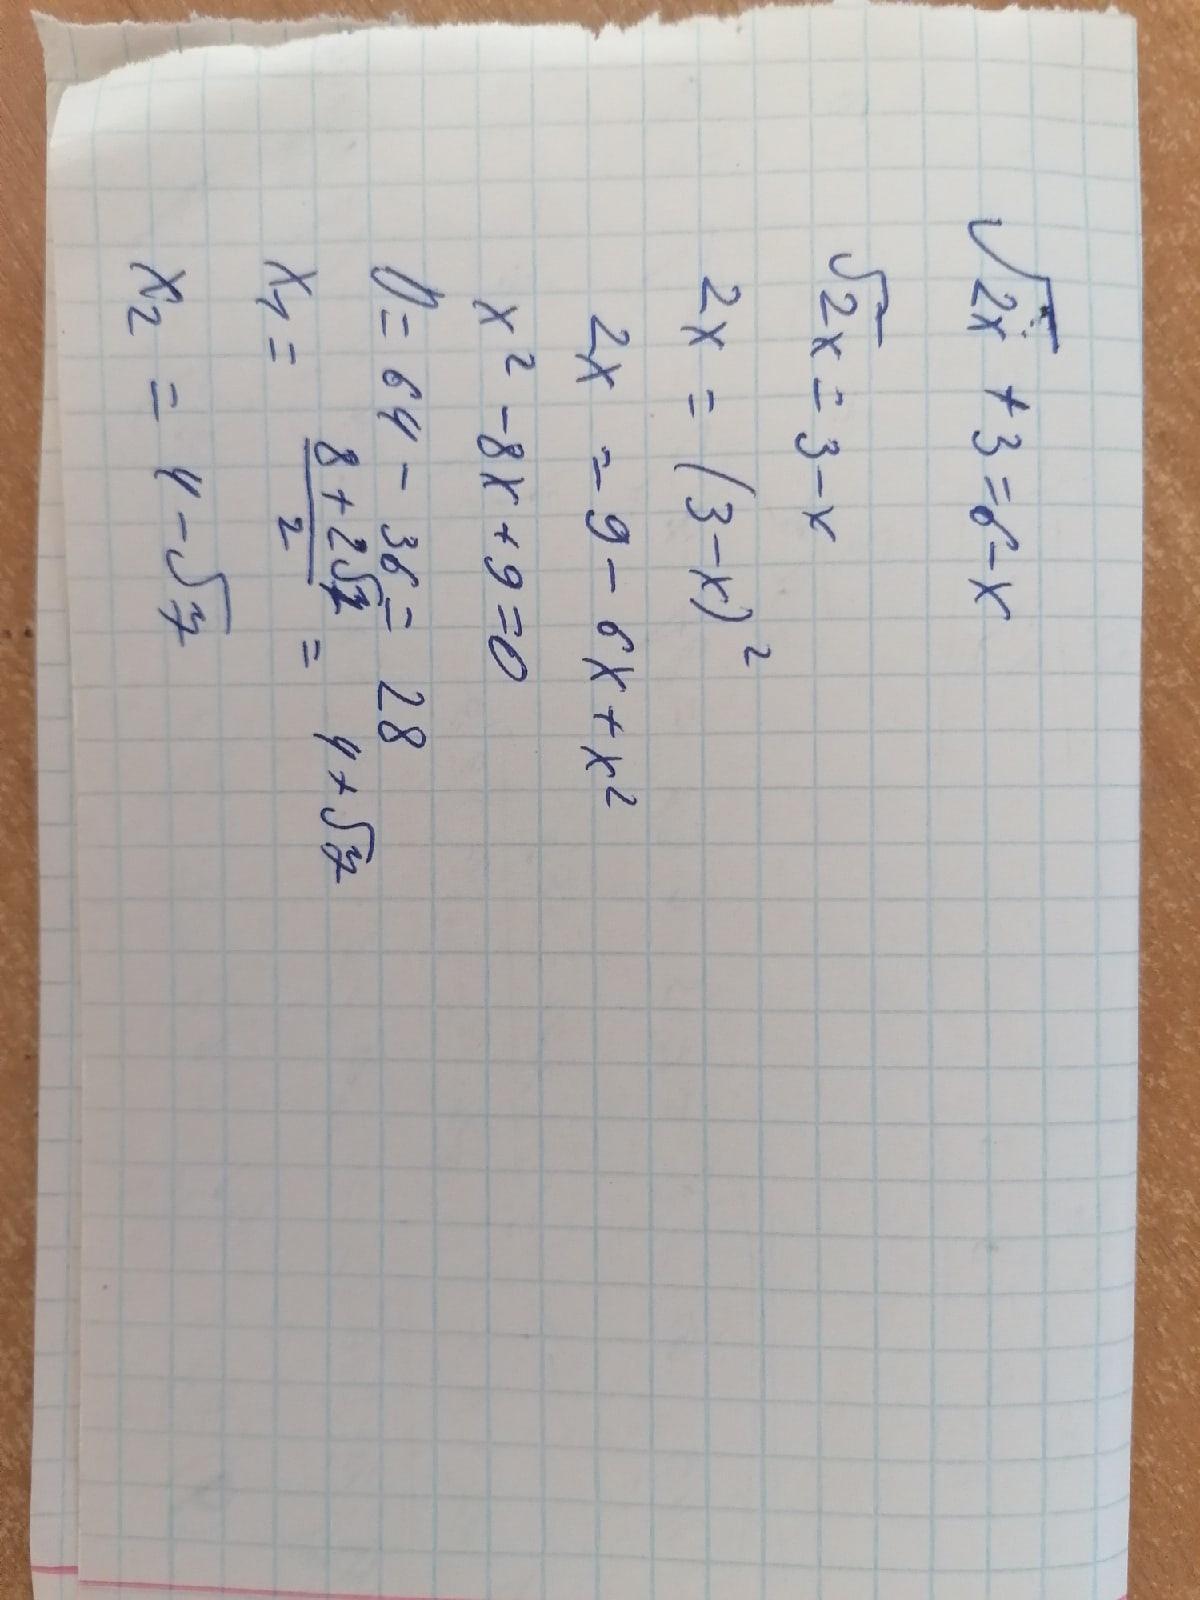 √2x + 3 = 6 - x
√2x = 3 - x
2x = (3 - x)²
2x = 9 - 6x + x²
x² - 8x + 9 = 0
D = 64 - 36 = 28
x₁ = (8 + 2√7)/2 = 4 + √7
x₂ = 4 - √7